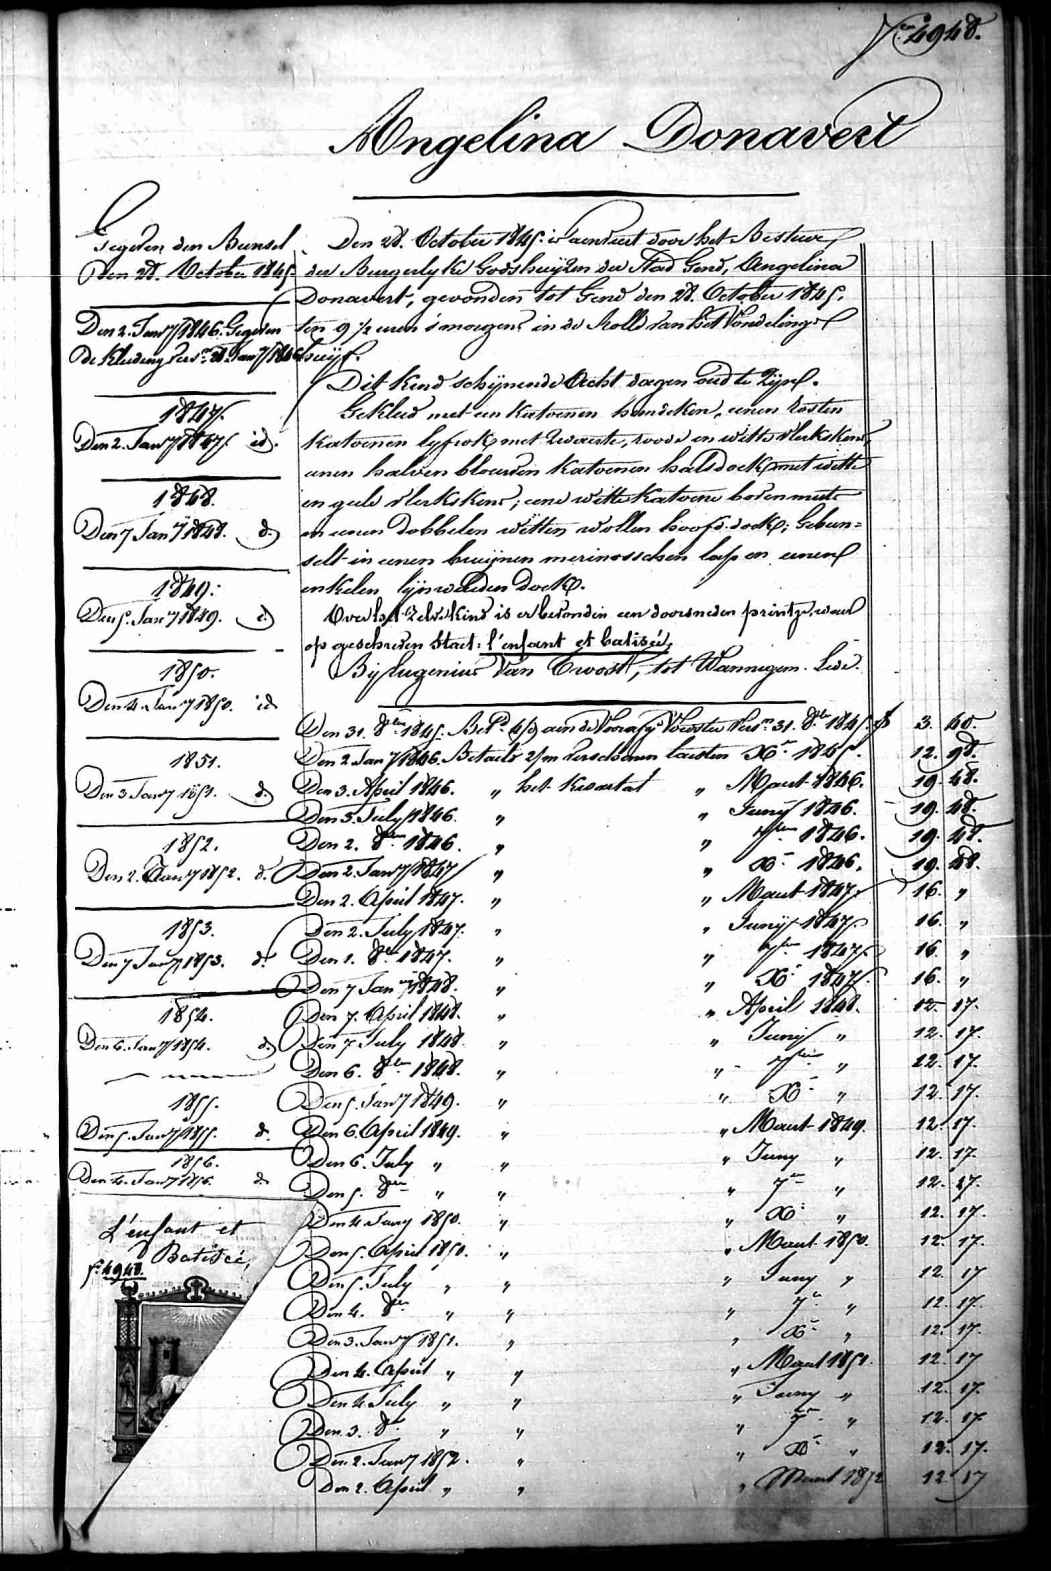 N.º 4948.
Angelina Donavert
Gegeven den Bunsel
Den 28. October 1845.
Den 2. Jany 1846. Gegeven
de Kleeding
1847.
Den 2. Jany 1847. id.
1848.
Den 7 Jany 1848. d.
1849.
Den 5. Jany 1849. d.
1850.
Den 4. Jany 1850. id
1851.
Den 3 Jany 1851. d.
1852.
Den 2. Jany 1852. d.
1853.
Den 7 Jany 1853. d.
1854.
Den 6. Jany 1854. d.
1855.
Den 5. Jany 1855. d.
1856.
Den 4. Jany 1856. d.
L'enfant et
Batiseé,
4948.
Den 28. October 1845. is aenveert door het Bestuur
der Burgerlyke Godshuyzen der Stad Gend, Angelina
Donavert, gevonden tot Gend den 28. October 1845.
ten 9 ½ uren s'morgens in de Rolle van het Vondelings
huys.
Dit kind schynende Acht dagen oud te zyn.
Gekleed met een katoenen hemdeken, eenen rosten
katoenen lyfrok met zwarte, roode en witte vlekskens,
eenen halven blauwen katoenen halsdoek met witte
en geele vlekskens; eene witte katoene bovenmuts
en eenen dobbelen witten wollen hoofd-doek; Gebun-
selt in eenen bruynen merinosschen lap en eenen
enkelen lynwaeden doek.
Over het zelve kind is er bevonden een doorsneden printje, waer
op geschreven staet: l'enfant et batiseé,
By Eugenius Van Troost, tot Wannegem-Lede.
Den 31. 8ber 1845. aen de 31. 8br 1845. 3. 40.
Den 2 Jany 1846. Betaeld 2/m verschenen laesten Xr 1845. 12. 98.
Den 3. April 1846. " het kwartal " Maert 1846. 19. 48.
Den 3. July 1846. " " Juny 1846. 19. 48.
Den 2. 8ber 1846. " " 7ber 1846. 19. 48.
Den 2. Jany 1847 " " Xr 1846. 19. 48.
Den 2. April 1847. " " Maert 1847. 16. "
Den 2. July 1847. " " Juny 1847. 16. "
Den 1. 8br 1847. " " 7ber 1847. 16. "
Den 7 Jany 1848. " " Xr 1847. 16. "
Den 7. April 1848. " " April 1848. 12. 17.
Den 7 July 1848. " " Juny " 12. 17.
Den 6. 8ber 1848. " " 7ber " 12. 17.
Den 5. Jany 1849. " " Xr " 12. 17.
Den 6. April 1849. " " Maert 1849. 12. 17.
Den 6. July " " " Juny " 12. 17.
Den 5. 8ber " " " 7br " 12. 17.
Den 4. Jany 1850. " " Xr " 12. 17.
Den 5. April 1850. " " Maert 1850. 12. 17.
Den 5. July " " " Juny " 12. 17
Den 4. 8ber " " " 7br " 12. 17.
Den 3. Jany 1851. " " Xr " 12. 17.
Den 4. April " " " Maert 1851. 12. 17
Den 4. July " " " Juny " 12. 17.
Den 3. 8br " " " 7br " 12. 17
Den 2. Jany 1852. " " Xr " 12. 17.
Den 2. April " " " Maert 1852 12 17